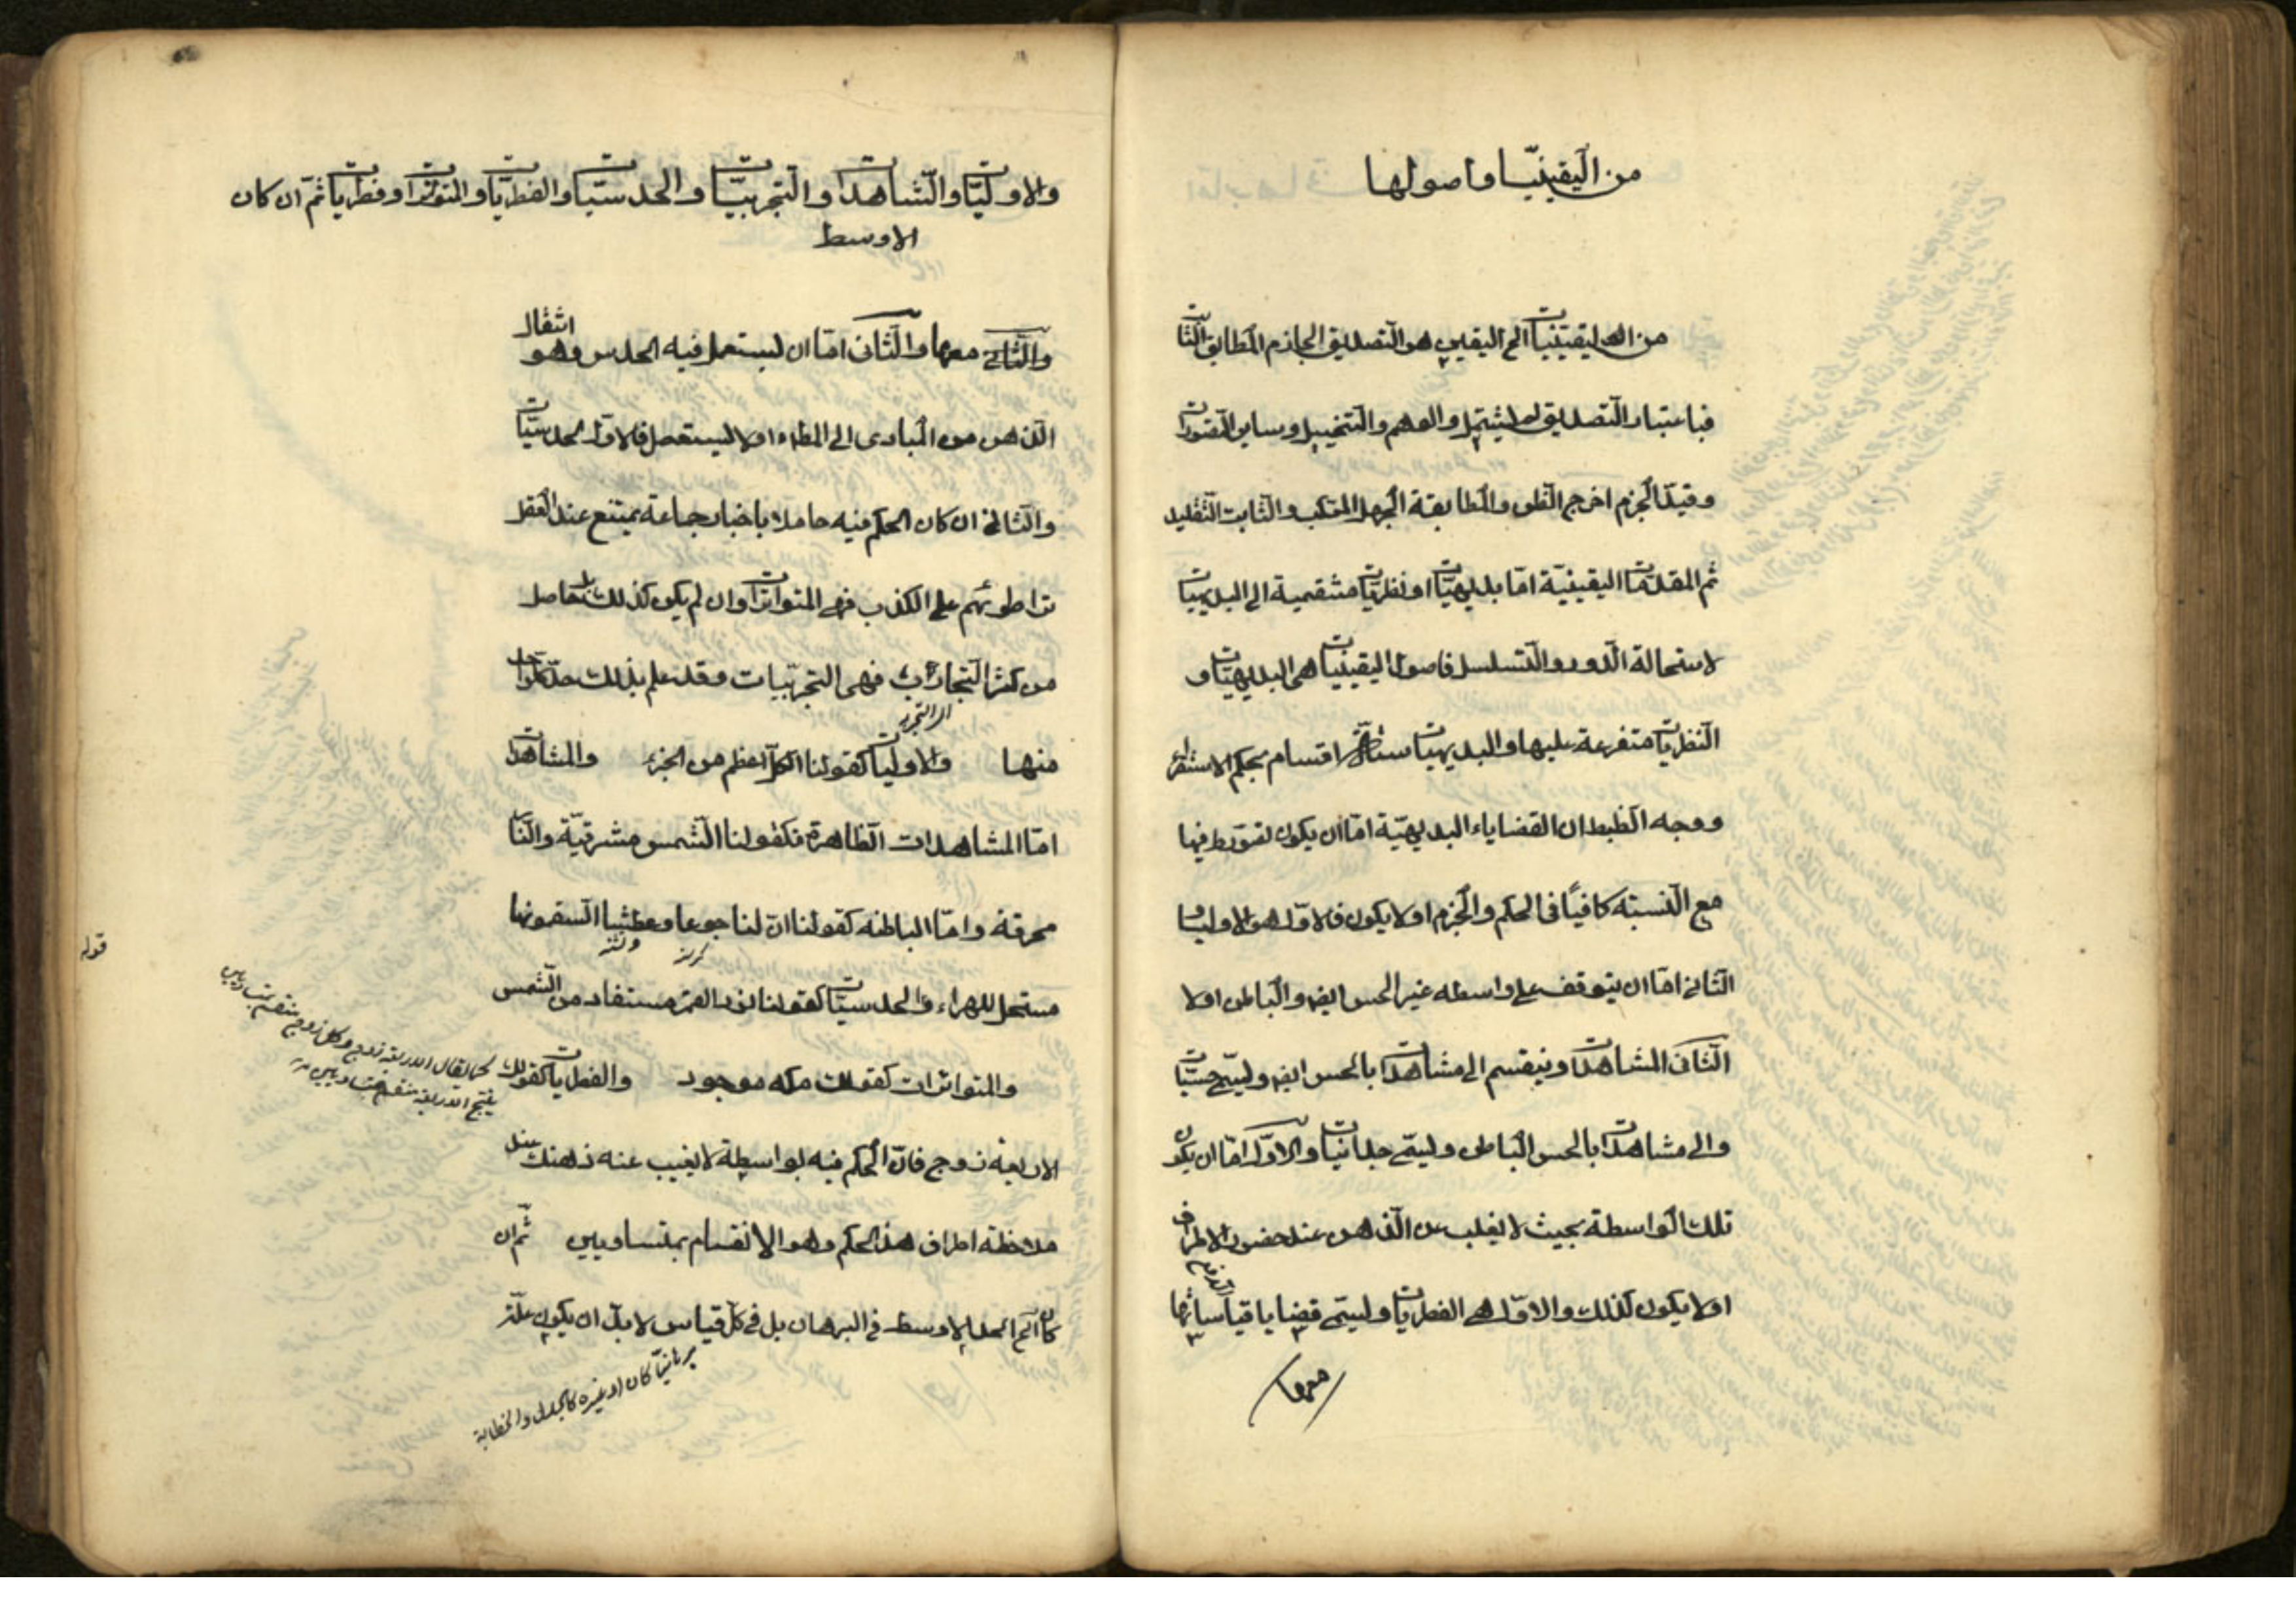 من اليقينيّات واصولها
من اليقينيات الخ اليقين هو التصديق الجازم المطابق الثابت
فباعتبار التصديق لم يشتمل والوهم والتخييل وساير التصورات
وقيد الجزم اخرج الظن والمطابقة الجهل المركب والثابت التقليد
ثم المقدمات اليقينيّة امّا بديهيّات او نظريّات منتهية الى البديهيات
لاستحالة الدور والتسلسل فاصول اليقينيات هى البديهيّات و
النظريات متفرعة عليها والبديهيات ستة اقسام بحكم الاستقراء
ووجه الضبط ان القضاياء البديهيّة امّا ان يكون تصور طرفيها
مع النسبته كافيًا فى الحكم والجزم او لا يكون فالاول هو الاوليات
الثانى امّا ان يتوقف على واسطه غير الحس الظ والباطن او لا
الثانى المشاهدات وينقسم الى مشاهدات بالحس الظ وليسمّى حسيّات
والى مشاهدات بالحس الباطن وليسمّى وجدانيات والاوّل امّا ان يكون
تلك الواسطة بحيث لا يغيب عن الذهن عند حضور الاطراف
او لا يكون كذلك والاوّل هى الفطريات وليسمّى قضايا قياساتها
معها
والاوليّات والمشاهدات والتجربيّات والحدسيّات والفطريّات والمتواترات او فطريات ثمّ ان كان
الاوسط
والثانى معها والثانى امّا ان ليستعمل فيه الحدس وهو انتقال
الذهن من المبادى الى المطلوب او لا ليستعمل فالاوّل الحدسيّات
والثانى ان كان الحكم فيه حاصلا باخبار جماعة يمتنع عند العقل
تواطوئهم على الكذب فهى المتواترات وان لم يكن كذلك بل حاصل
من كثرة التجارب فهى التجربيّات وقد علم بذلك حدّ كل واحد
منها والاوليات كقولنا الكل اعظم من الجزء والمشاهدات
امّا المشاهدات الظاهرة فكقولنا الشمس مشرقيّة والنار
محرقة وامّا الباطنه كقولنا ان لنا جوعا وعطشا السقمونيا
مسهل للصفراء والحدسيّات كقولنا نور القمر مستفاد من الشمس
والمتواترات كقولك مكه موجود والفطريات كقولك
الاربعة زوج فانّ الحكم فيه بواسطة لا يغيب عنه ذهنك عند
ملاحظة اطراف هذ الحكم وهو الانقسام بمتساويين ثمّ ان
كان الخ الحد الاوسط فى البرهان بل فى كل قياس لا بدّ ان يكون علّة
برهانيّا كان او غيره كالجدل والخطابة
كما يقال الاربعة زوج وكل زوج منقسم بمتساويين
ينتج الاربعة منقسم بمتساويين
قوله